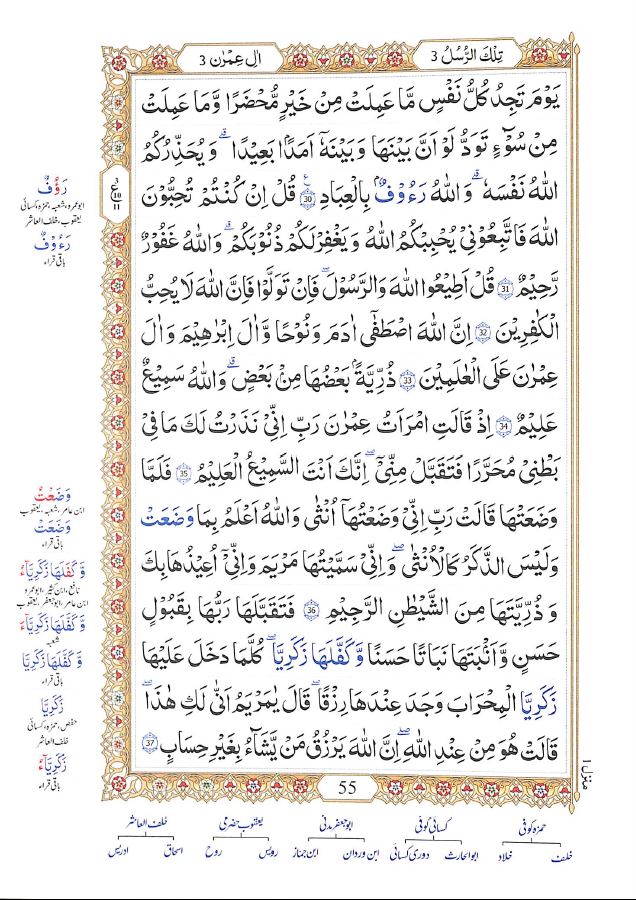 تِلْكَ الرُّسُلُ 3
اٰلِ عِمْرٰن 3
يَوْمَ تَجِدُ كُلُّ نَفْسٍ مَّا عَمِلَتْ مِنْ خَيْرٍ مُّحْضَرًا وَّمَا عَمِلَتْ
مِنْ سُوْٓءٍ تَوَدُّ لَوْ اَنَّ بَيْنَهَا وَبَيْنَهٗٓ اَمَدًاۢ بَعِيْدًا ؕ وَيُحَذِّرُكُمُ
اللهُ نَفْسَهٗ ؕ وَاللهُ رَءُوْفٌۢ بِالْعِبَادِ 30 قُلْ اِنْ كُنْتُمْ تُحِبُّوْنَ
اللهَ فَاتَّبِعُوْنِيْ يُحْبِبْكُمُ اللهُ وَيَغْفِرْلَكُمْ ذُنُوْبَكُمْ ؕ وَاللهُ غَفُوْرٌ
رَّحِيْمٌ 31 قُلْ اَطِيْعُوا اللهَ وَالرَّسُوْلَ ۚ فَاِنْ تَوَلَّوْا فَاِنَّ اللهَ لَا يُحِبُّ
الْكٰفِرِيْنَ 32 اِنَّ اللهَ اصْطَفٰٓى اٰدَمَ وَنُوْحًا وَّاٰلَ اِبْرٰهِيْمَ وَاٰلَ
عِمْرٰنَ عَلَى الْعٰلَمِيْنَ 33 ذُرِّيَّةًۢ بَعْضُهَا مِنْۢ بَعْضٍ ؕ وَاللهُ سَمِيْعٌ
عَلِيْمٌ 34 اِذْ قَالَتِ امْرَاَتُ عِمْرٰنَ رَبِّ اِنِّيْ نَذَرْتُ لَكَ مَا فِيْ
بَطْنِيْ مُحَرَّرًا فَتَقَبَّلْ مِنِّيْ ۚ اِنَّكَ اَنْتَ السَّمِيْعُ الْعَلِيْمُ 35 فَلَمَّا
وَضَعَتْهَا قَالَتْ رَبِّ اِنِّيْ وَضَعْتُهَآ اُنْثٰى وَاللهُ اَعْلَمُ بِمَا وَضَعَتْ
وَلَيْسَ الذَّكَرُ كَالْاُنْثٰى ۚ وَاِنِّيْ سَمَّيْتُهَا مَرْيَمَ وَاِنِّيْٓ اُعِيْذُهَا بِكَ
وَذُرِّيَّتَهَا مِنَ الشَّيْطٰنِ الرَّجِيْمِ 36 فَتَقَبَّلَهَا رَبُّهَا بِقَبُوْلٍ
حَسَنٍ وَّاَنْۢبَتَهَا نَبَاتًا حَسَنًا وَّكَفَّلَهَا زَكَرِيَّا ۚ كُلَّمَا دَخَلَ عَلَيْهَا
زَكَرِيَّا الْمِحْرَابَ وَجَدَ عِنْدَهَا رِزْقًا ۚ قَالَ يٰمَرْيَمُ اَنّٰى لَكِ هٰذَا ؕ
قَالَتْ هُوَ مِنْ عِنْدِ اللهِ ؕ اِنَّ اللهَ يَرْزُقُ مَنْ يَّشَآءُ بِغَيْرِ حِسَابٍ 37
3
ع
10
11
رَؤُفٌ
ابوعمرو، شعبہ، حمزہ، کسائی
یعقوب، خلف العاشر
رَءُوْفٌ
باقی قراء
وَضَعْتُ
ابن عامر، شعبہ، یعقوب
وَضَعَتْ
باقی قراء
وَّكَفَلَهَا زَكَرِيَّآءُ
نافع، ابن کثیر، ابوعمرو
ابن عامر، ابوجعفر، یعقوب
وَّكَفَّلَهَا زَكَرِيَّآءَ
شعبہ
وَّكَفَّلَهَا زَكَرِيَّا
باقی قراء
زَكَرِيَّا
حفص، حمزہ، کسائی
خلف العاشر
زَكَرِيَّآءُ
باقی قراء
منزل ۱
55
حمزہ کوفی
کسائی کوفی
ابوجعفر مدنی
یعقوب حضرمی
خلف العاشر
خلف
خلاد
ابوالحارث
دوری کسائی
ابن وردان
ابن جماز
رویس
روح
اسحاق
ادریس